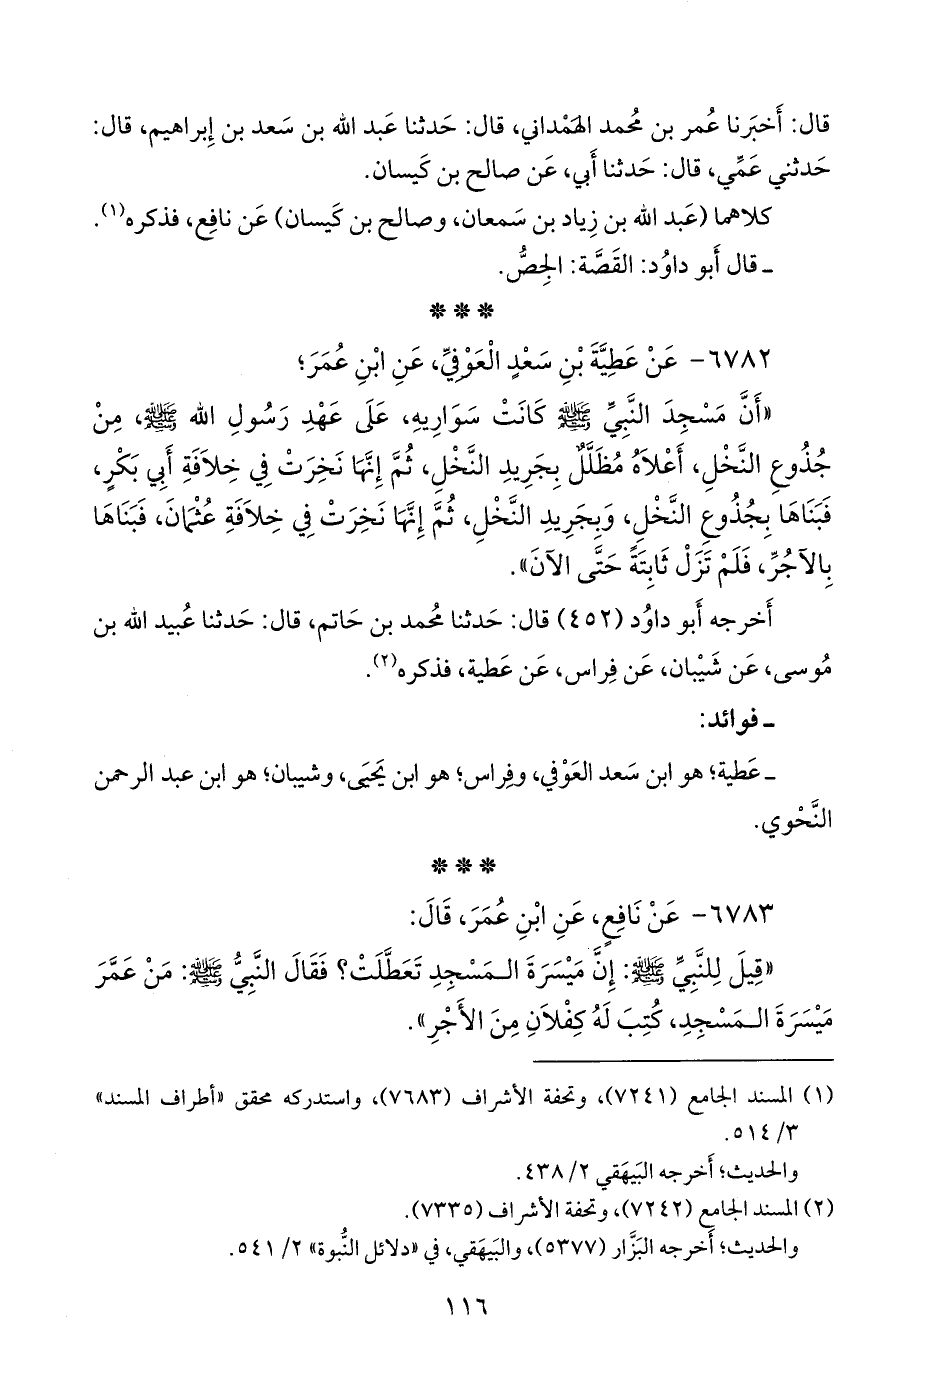 قال: أَخبَرنا عُمر بن مُحمد الهَمْداني، قال: حَدثنا عَبد الله بن سَعد بن إِبراهيم، قال:
حَدثني عَمِّي، قال: حَدثنا أَبي، عَن صالح بن كَيسان.
كلاهما (عَبد الله بن زِياد بن سَمعان، وصالح بن كَيسان) عَن نافِع، فذكره(١).
ـ قال أَبو داوُد: القَصَّة: الجِصُّ.
***
٦٧٨٢- عَنْ عَطِيَّةَ بْنِ سَعْدٍ الْعَوْفِيِّ، عَنِ ابْنِ عُمَرَ؛
«أَنَّ مَسْجِدَ النَّبِيِّ ﷺ كَانَتْ سَوَارِيهِ، عَلَى عَهْدِ رَسُولِ الله ﷺ، مِنْ
جُذُوعِ النَّخْلِ، أَعْلاَهُ مُظَلَّلٌ بِجَرِيدِ النَّخْلِ، ثُمَّ إِنَّهَا نَخِرَتْ فِي خِلاَفَةِ أَبِي بَكْرٍ،
فَبَنَاهَا بِجُذُوعِ النَّخْلِ، وَبِجَرِيدِ النَّخْلِ، ثُمَّ إِنَّهَا نَخِرَتْ فِي خِلاَفَةِ عُثْمَانَ، فَبَنَاهَا
بِالآجُرِّ، فَلَمْ تَزَلْ ثَابِتَةً حَتَّى الآنَ».
أَخرجه أَبو داوُد (٤٥٢) قال: حَدثنا مُحمد بن حَاتم، قال: حَدثنا عُبيد الله بن
مُوسى، عَن شَيْبان، عَن فِراس، عَن عَطية، فذكره(٢).
ـ فوائد:
ـ عَطية؛ هو ابن سَعد العَوْفي، وفِراس؛ هو ابن يَحيَى، وشيبان؛ هو ابن عبد الرحمن
النَّحْوي.
***
٦٧٨٣- عَنْ نَافِعٍ، عَنِ ابْنِ عُمَرَ، قَالَ:
«قِيلَ لِلنَّبِيِّ ﷺ: إِنَّ مَيْسَرَةَ الـمَسْجِدِ تَعَطَّلَتْ؟ فَقَالَ النَّبِيُّ ﷺ: مَنْ عَمَّرَ
مَيْسَرَةَ الـمَسْجِدِ، كُتِبَ لَهُ كِفْلاَنِ مِنَ الأَجْرِ».
(١) المسند الجامع (٧٢٤١)، وتحفة الأشراف (٧٦٨٣)، واستدركه محقق «أطراف المسند»
٣/ ٥١٤.
والحديث؛ أَخرجه البَيهَقي ٢/ ٤٣٨.
(٢) المسند الجامع (٧٢٤٢)، وتحفة الأشراف (٧٣٣٥).
والحديث؛ أَخرجه البَزَّار (٥٣٧٧)، والبَيهَقي، في «دلائل النُّبوة» ٢/ ٥٤١.
١١٦